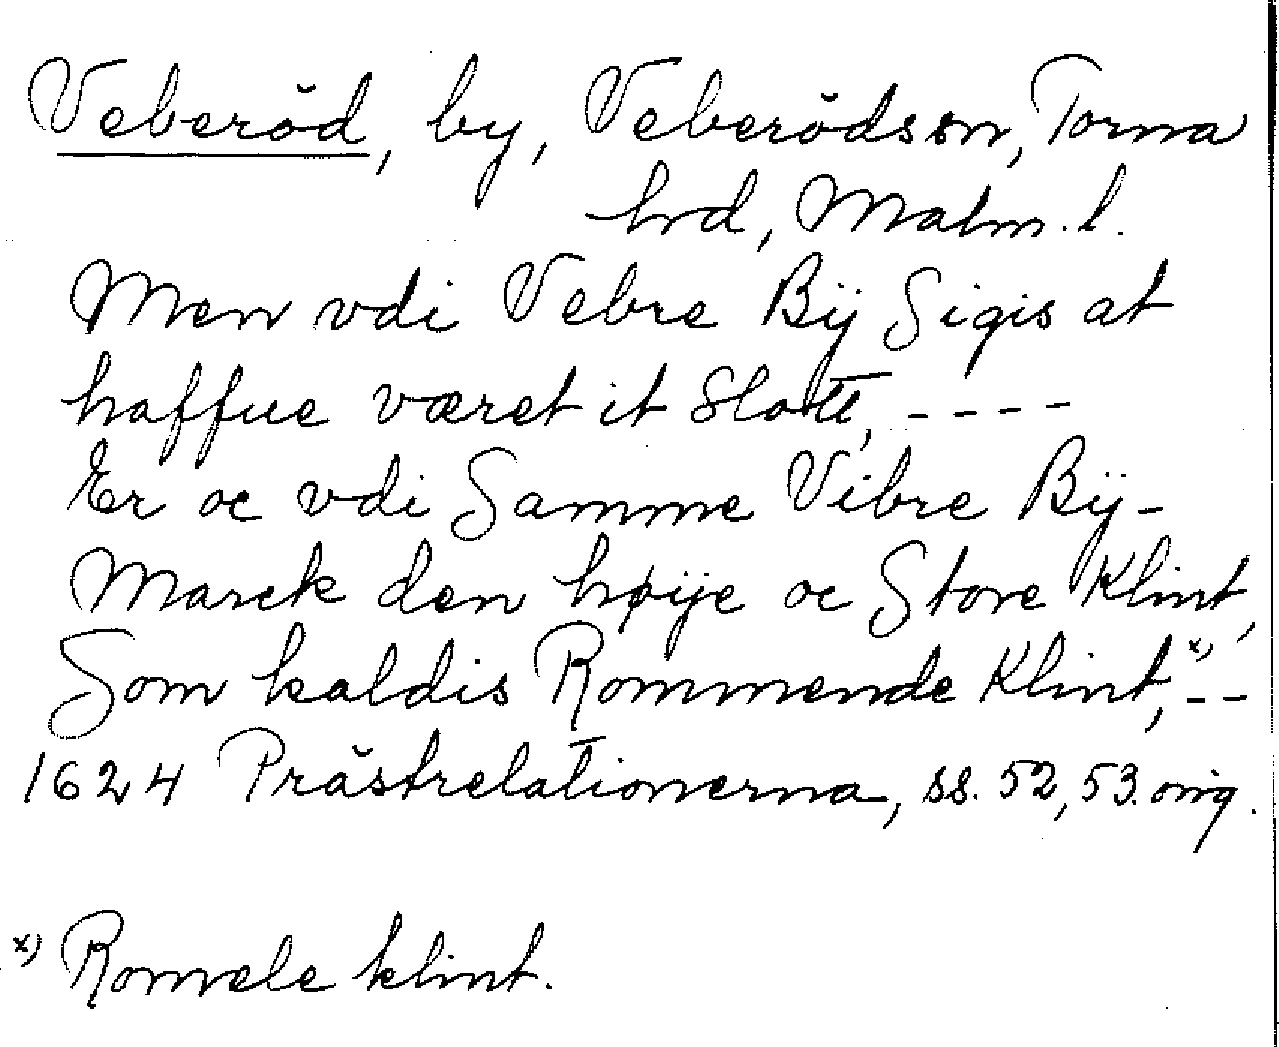 Veberöd, by, Veberöds sn, Torna
hrd, Malm. l.
Men vdi Vebre Bÿ Sigis at
haffue været it Slott, ----
Er oc vdi Samme Vibre Bÿ-
Marck den høÿe oc Store Klint,
Som kaldis Rommende Klint,x) --
1624 Prästrelationerna, ss. 52, 53. orig.
x) Romele klint.